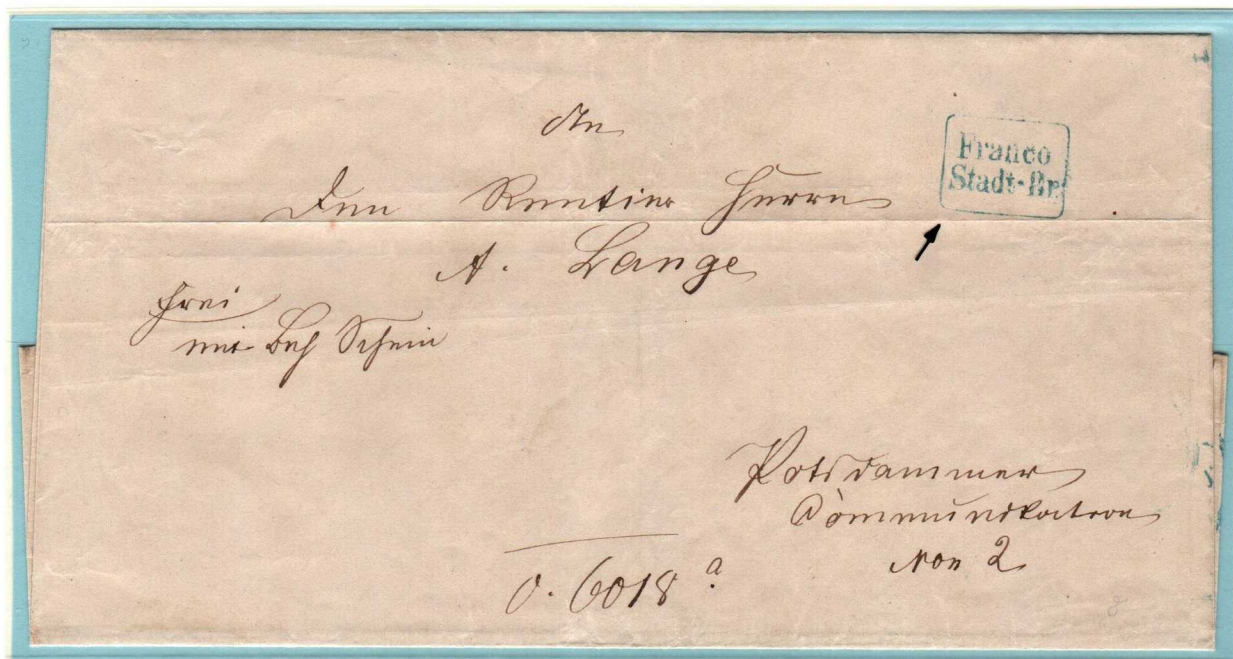 An
Franco
Stadt-Br.
den Rentier Herrn
A. Lange
frei
mit Beh Schein
Potsdammer
Communikation
Non 2
O. 6018 a